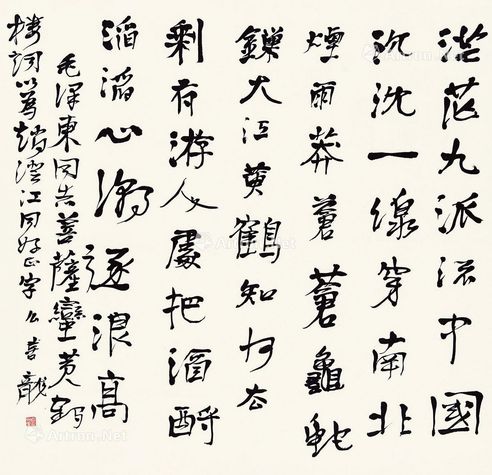 茫茫九派流中國
沉沈一線穿南北
煙雨莽蒼蒼龜蛇
鎖大江黃鶴知何去
剩有游人處把酒酹
滔滔心潮逐浪高
毛澤東同志菩薩蠻黃鶴
樓詞以澄江同好正字
Artron.Net